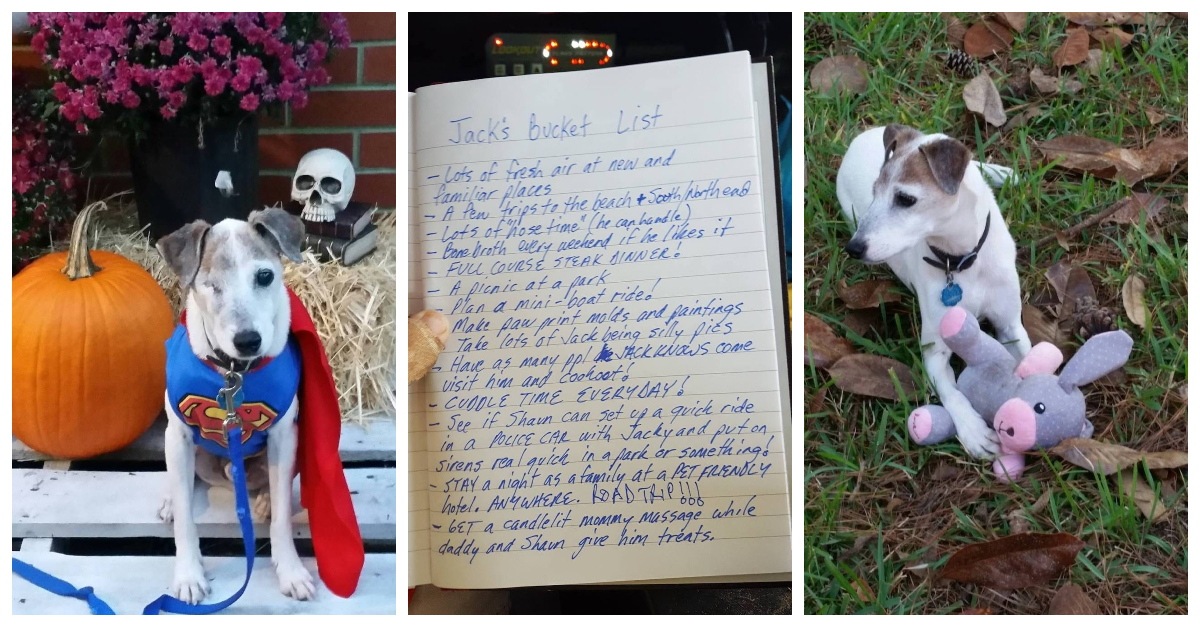 LOOKOUT
Jack's Bucket List
- Lots of fresh air at new and
familiar places
- A few trips to the beach + South/North end
- Lots of "nose time" (he can handle)
- Bone broth every weekend if he likes it
- FULL COURSE STEAK DINNER!
- A picnic at a park
- Plan a mini-boat ride!
- Make paw print molds and paintings
- Take lots of Jack being silly pics
- Have as many ppl JACK KNOWS come
visit him and cookout!
- CUDDLE TIME EVERYDAY!
- See if Shaun can set up a quick ride
in a POLICE CAR with Jacky and put on
sirens real quick in a park or something!
- STAY a night as a family at a PET FRIENDLY
hotel. ANYWHERE. ROAD TRIP!!!
- GET a candlelit mommy massage while
daddy and Shaun give him treats.